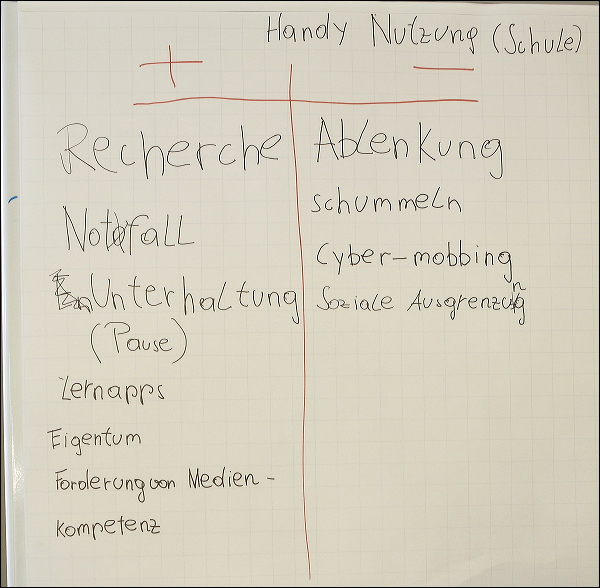 Handy Nutzung (Schule)
+ −
Recherche
Notfall
Unterhaltung
(Pause)
Lernapps
Eigentum
Förderung von Medien-
kompetenz
Ablenkung
schummeln
Cyber-mobbing
Soziale Ausgrenzung